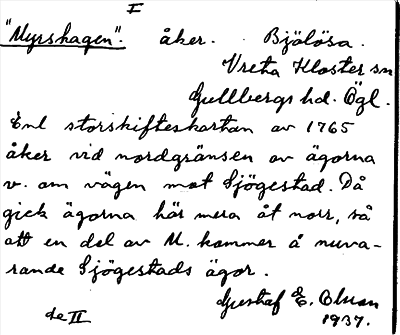 I
"Myrshagen". åker. Bjölösa.
Vreta Kloster sn
Gullbergs hd. Ögl.
Enl storskifteskartan av 1765
åker vid nordgränsen av ägorna
v. om vägen mot Sjögestad. Då
gick ägorna här mera åt norr, så
att en del av M. kommer å nuva-
rande Sjögestads ägor.
Gustaf E. Olson
1937.
de II